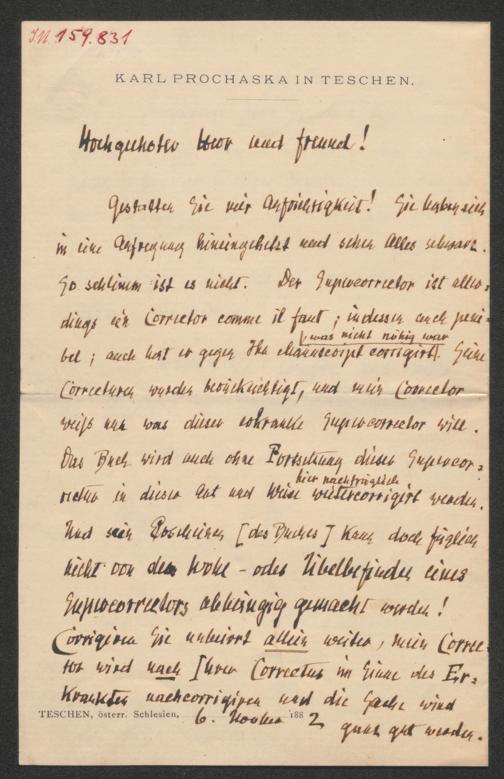 J.N. 159.831
KARL PROCHASKA IN TESCHEN.
Hochgeehrter Herr und Freund!
Gestatten Sie mir Aufrichtigkeit! Sie haben sich
in eine Aufregung hineingehetzt und sehen Alles schwarz.
So schlimm ist es nicht. Der Supercorrector ist aller-
dings ein Corrector comme il faut; indessen auch peni-
was nicht nöthig war
bel; auch hat er gegen Ihr Manuscript corrigirt. Seine
Correcturen wurden berücksichtigt, und mein Corrector
weiß nun was dieser erkrankte Supercorrector will.
Das Buch wird auch ohne Fortsetzung dieser Supercor-
hier nachträglich
rectur in dieser Art und Weise weitercorrigirt werden.
Und sein Erscheinen [des Buches] kann doch füglich
nicht von dem Wohl- oder Übelbefinden eines
Supercorrectors abhängig gemacht werden!
Corrigiren Sie unbeirrt allein weiter, mein Correc-
tor wird nach Ihrer Correctur im Sinne des Er-
krankten nachcorrigiren und die Sache wird
TESCHEN, österr. Schlesien, 6. 188 2
ganz gut werden.